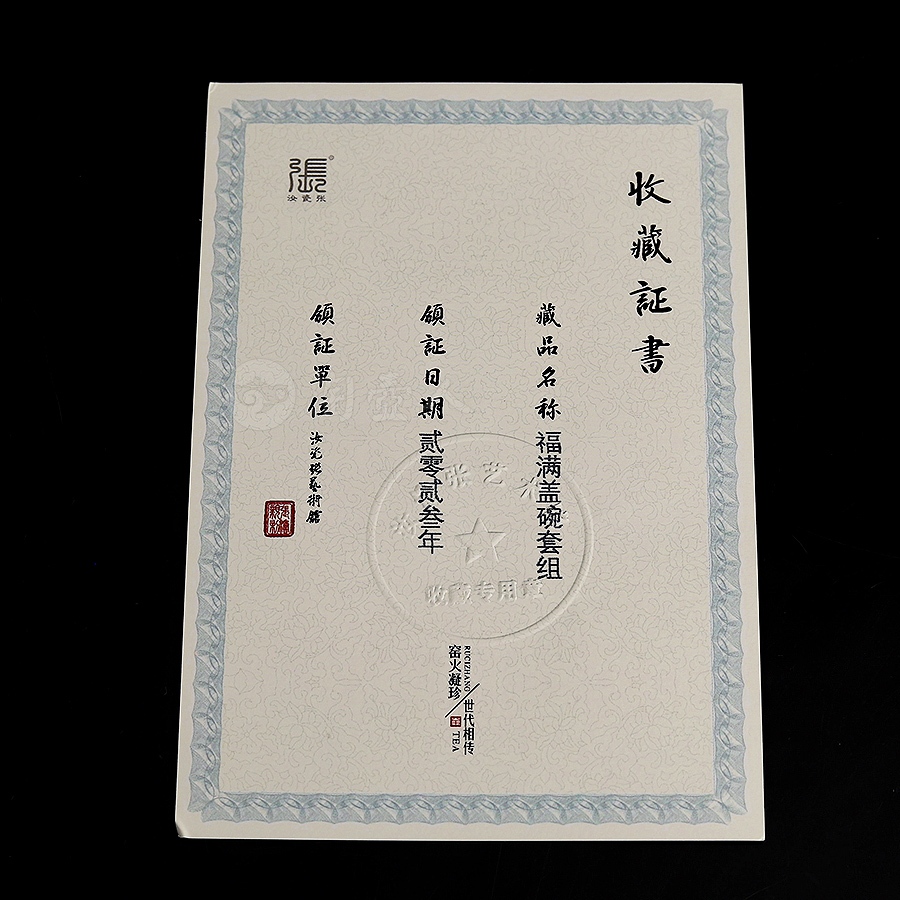 收藏証書
藏品名称 福满盖碗套组
領証日期 贰零贰叁年
領証單位 汝瓷張藝術館
張
汝瓷张
张艺术
收藏专用章
RUCIZHANG
窑火凝珍
世代相传
TEA